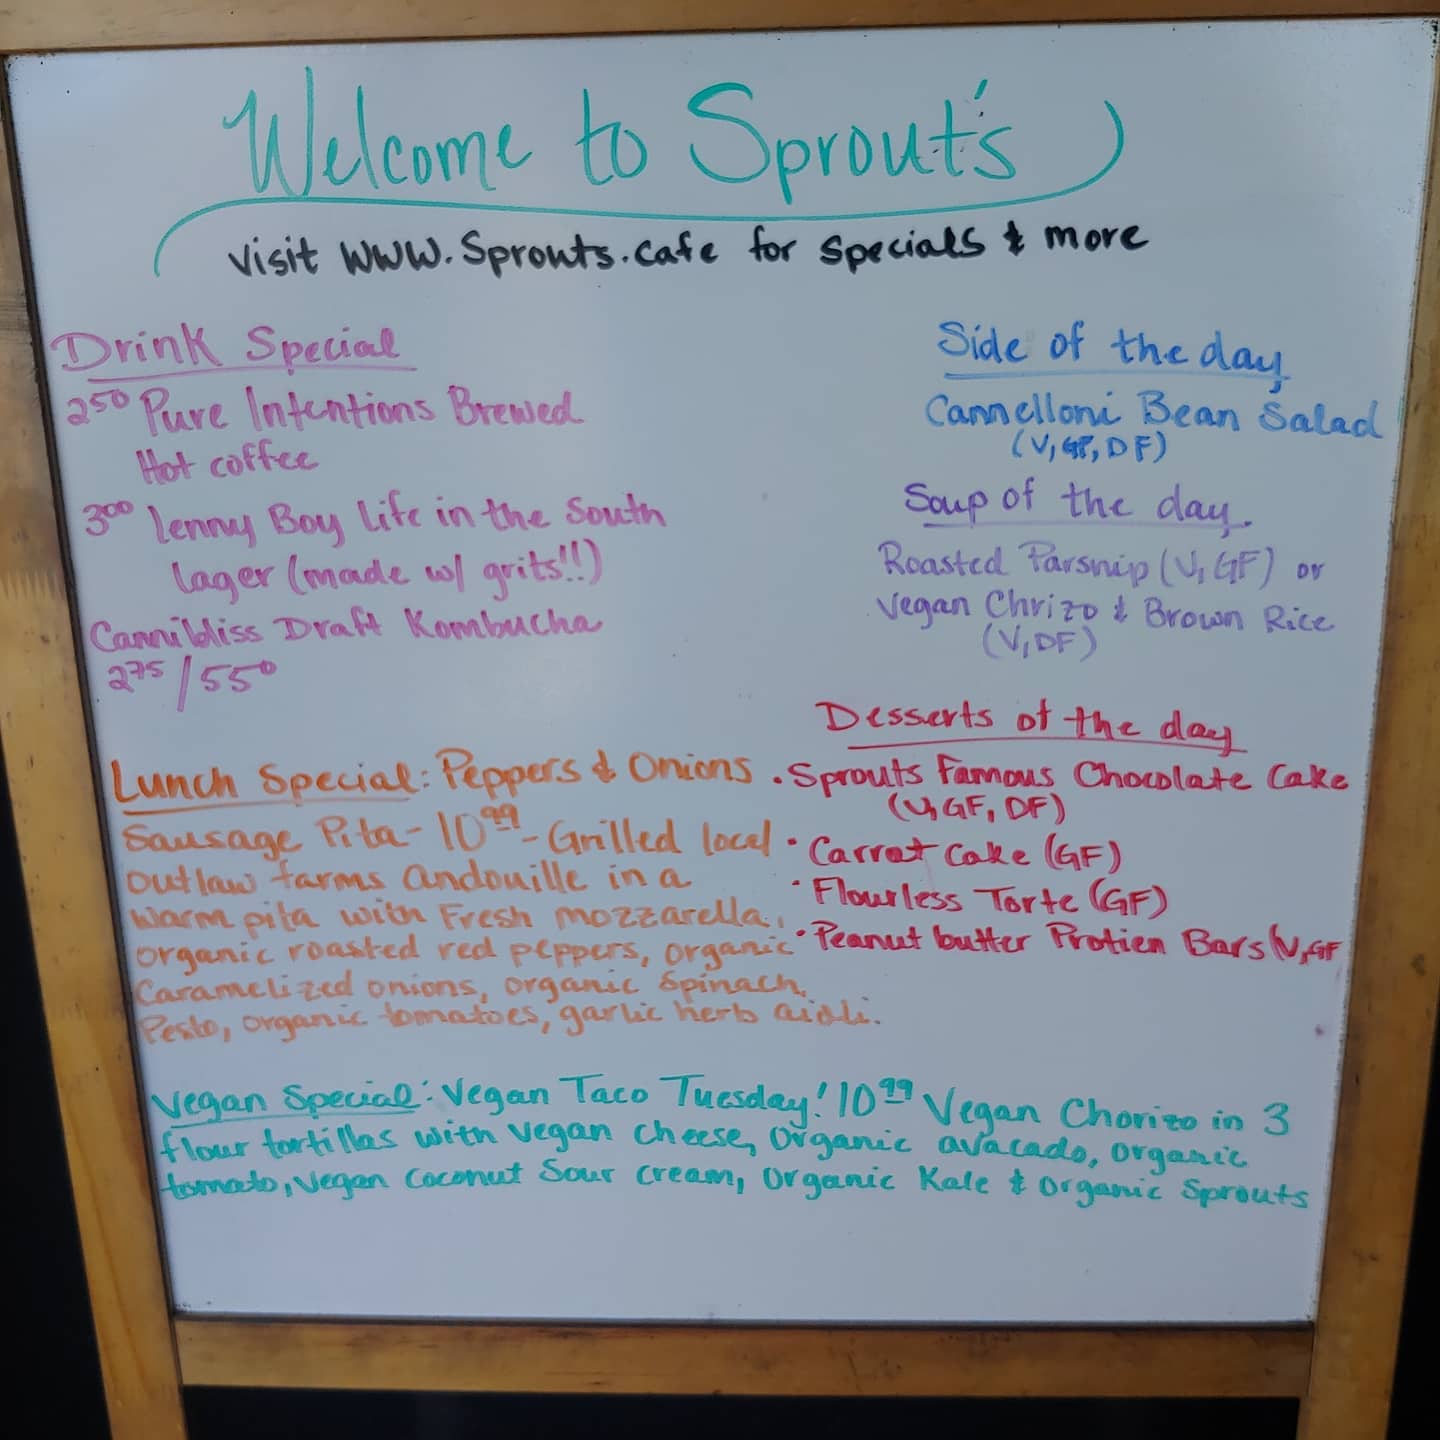 Welcome to Sprout's
visit www.Sprouts.cafe for specials & more
Drink Special
2⁵⁰ Pure Intentions Brewed
Hot coffee
3⁰⁰ Lenny Boy Life in the South
Lager (made w/ grits!!)
Cannibliss Draft Kombucha
2⁷⁵/5⁵⁰
Side of the day
Cannelloni Bean Salad
(V, GF, DF)
Soup of the day
Roasted Parsnip (V, GF) or
Vegan Chrizo & Brown Rice
(V, DF)
Desserts of the day
· Sprouts Famous Chocolate Cake
(V, GF, DF)
· Carrot Cake (GF)
· Flourless Torte (GF)
· Peanut butter Protien Bars (V, GF
Lunch Special: Peppers & Onions
Sausage Pita - 10⁹⁹ - Grilled local
outlaw farms andouille in a
warm pita with Fresh mozzarella,
organic roasted red peppers, organic
Caramelized onions, organic spinach,
Pesto, organic tomatoes, garlic herb aioli.
Vegan Special: Vegan Taco Tuesday! 10⁹⁹ Vegan Chorizo in 3
flour tortillas with vegan cheese, organic avacado, organic
tomato, vegan coconut Sour cream, organic Kale & organic Sprouts